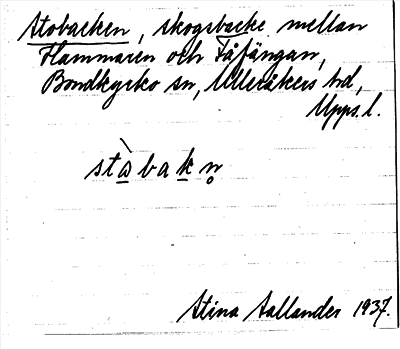 Stobacken, skogsbacke mellan
Flammaren och Fåfängan,
Bondkyrko sn, Ulleråkers hd,
Upps. l.
stàbakn̥
Stina Aallander 1937.